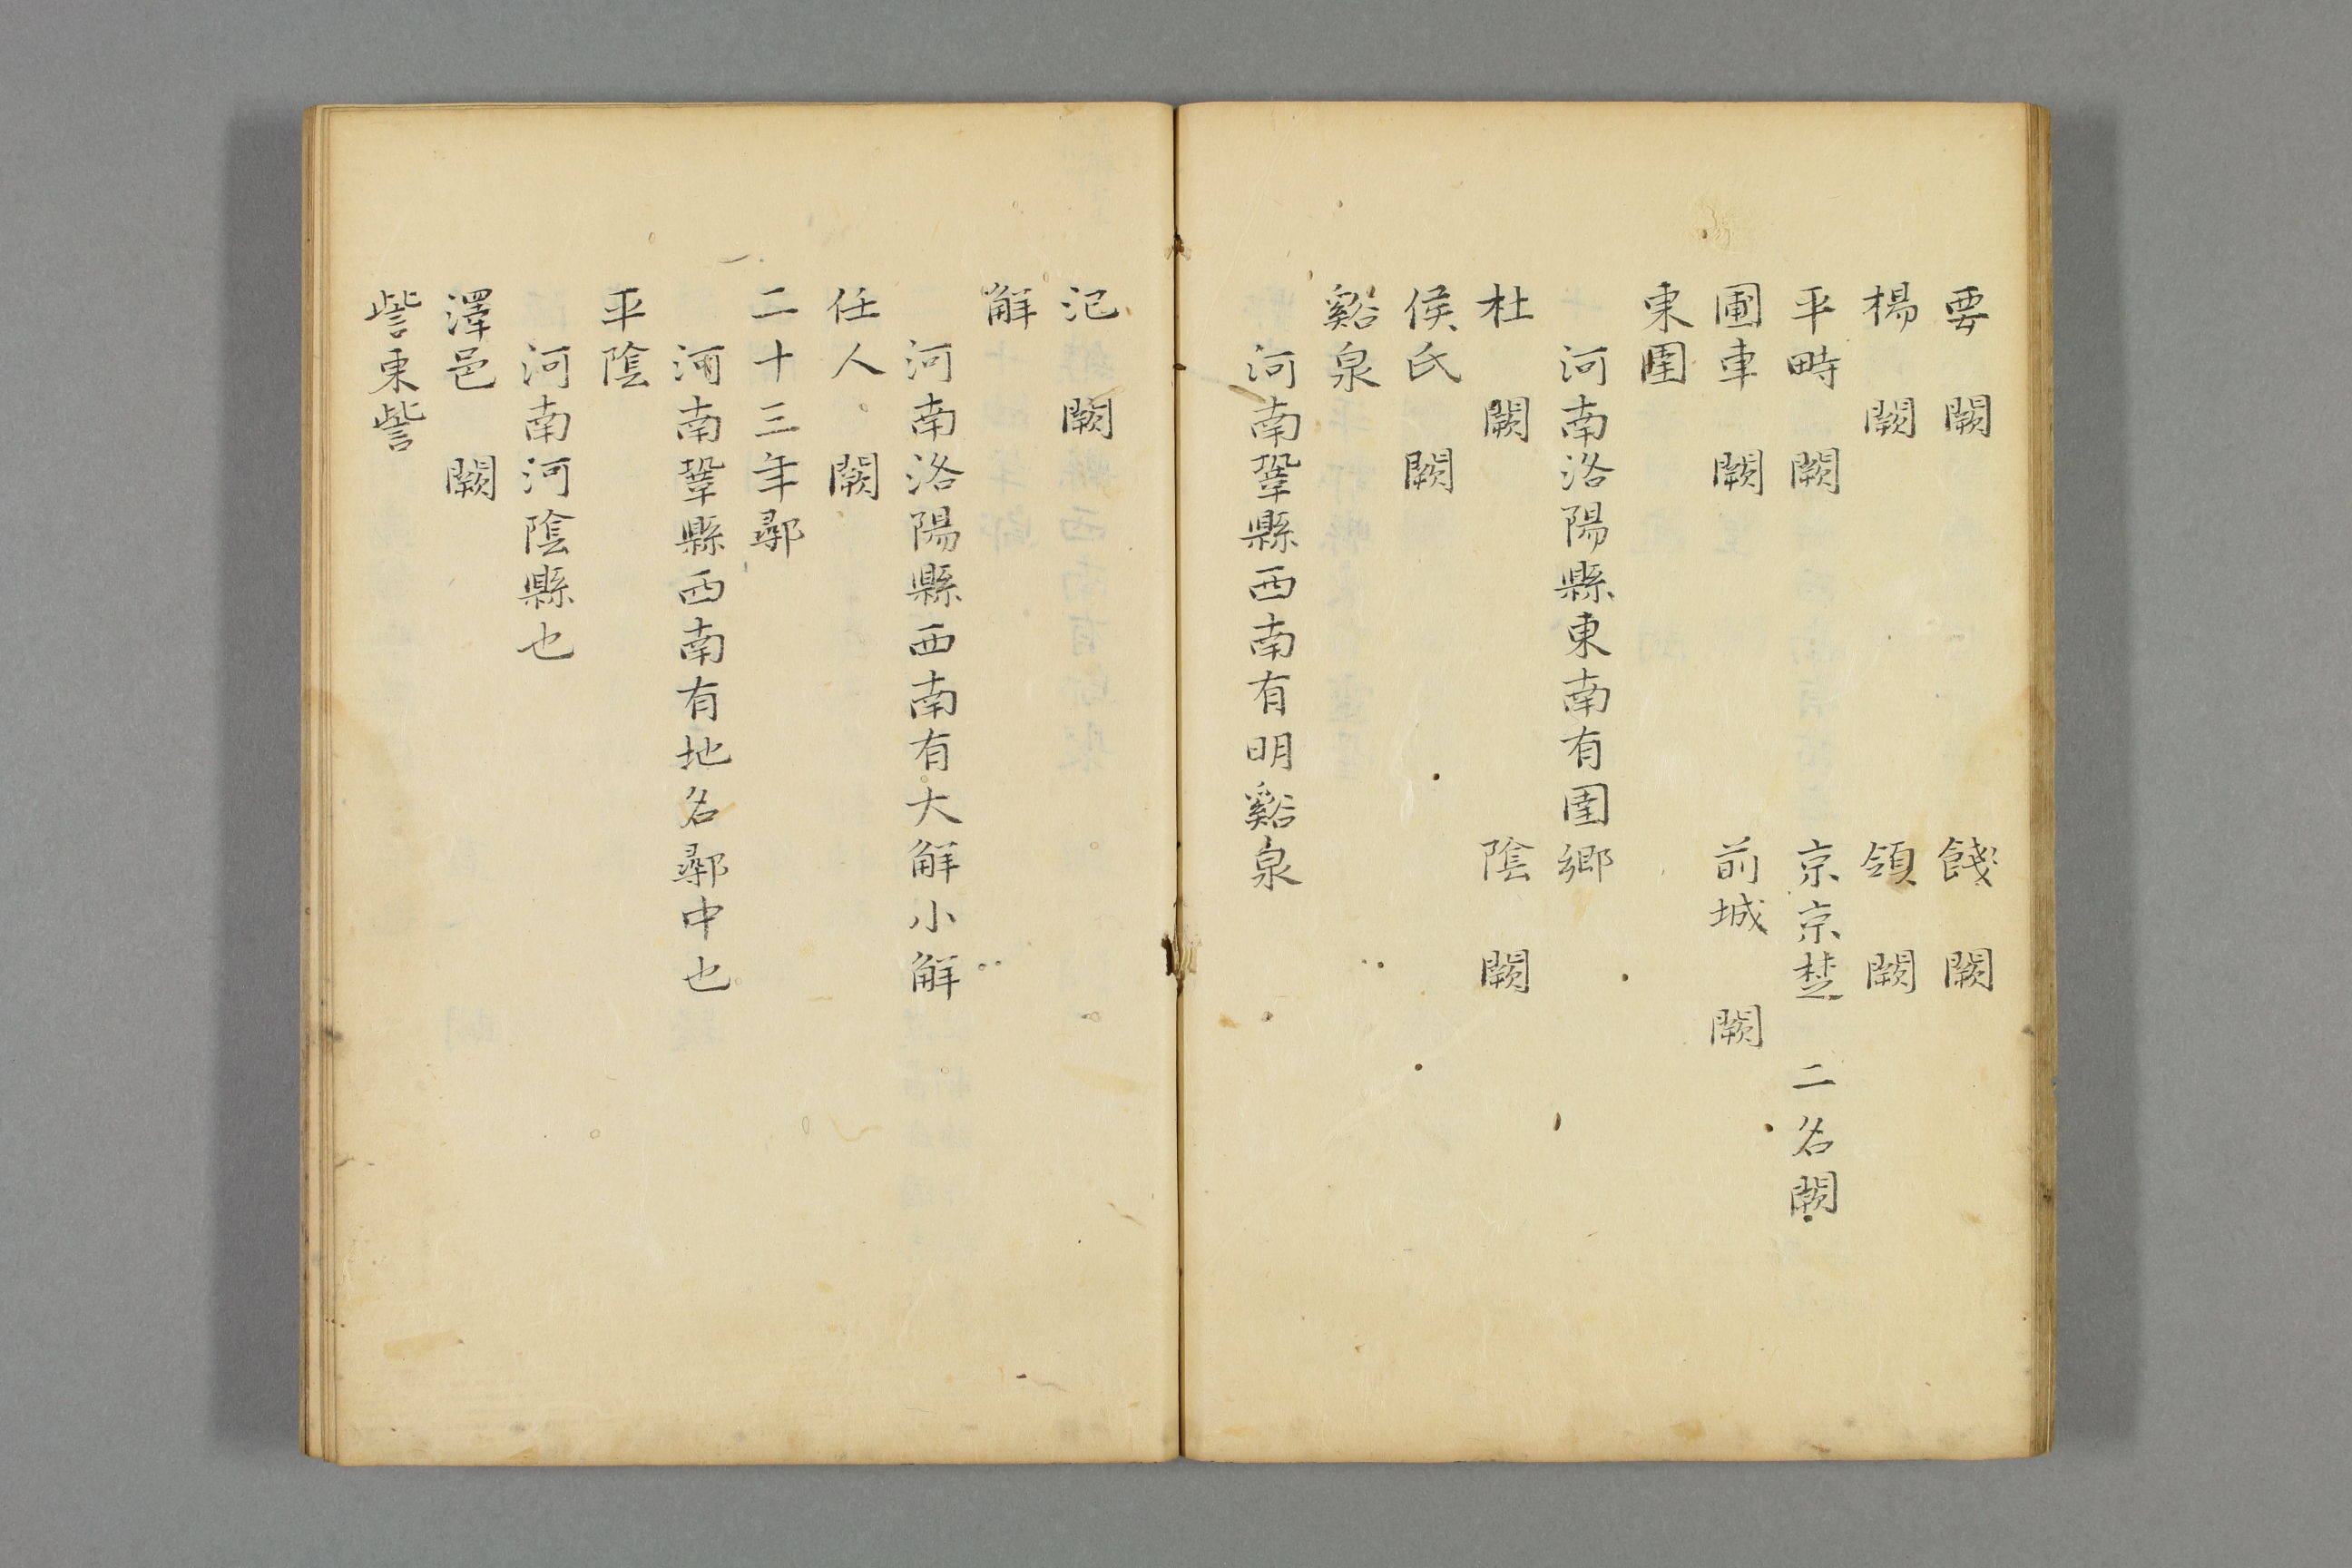 要　闕　餞　闕
楊　闕　領　闕
平畤　闕　京京楚　二名闕
圃車　闕　前城　闕
東圉
河南洛陽縣東南有圉鄉
杜　闕　陰　闕
侯氏　闕
谿泉
河南鞏縣西南有明谿泉
氾　闕
解
河南洛陽縣西南有大解小解
任人　闕
二十三年鄩
河南鞏縣西南有地名鄩中也
平陰
河南河陰縣也
澤邑　闕
訾東訾